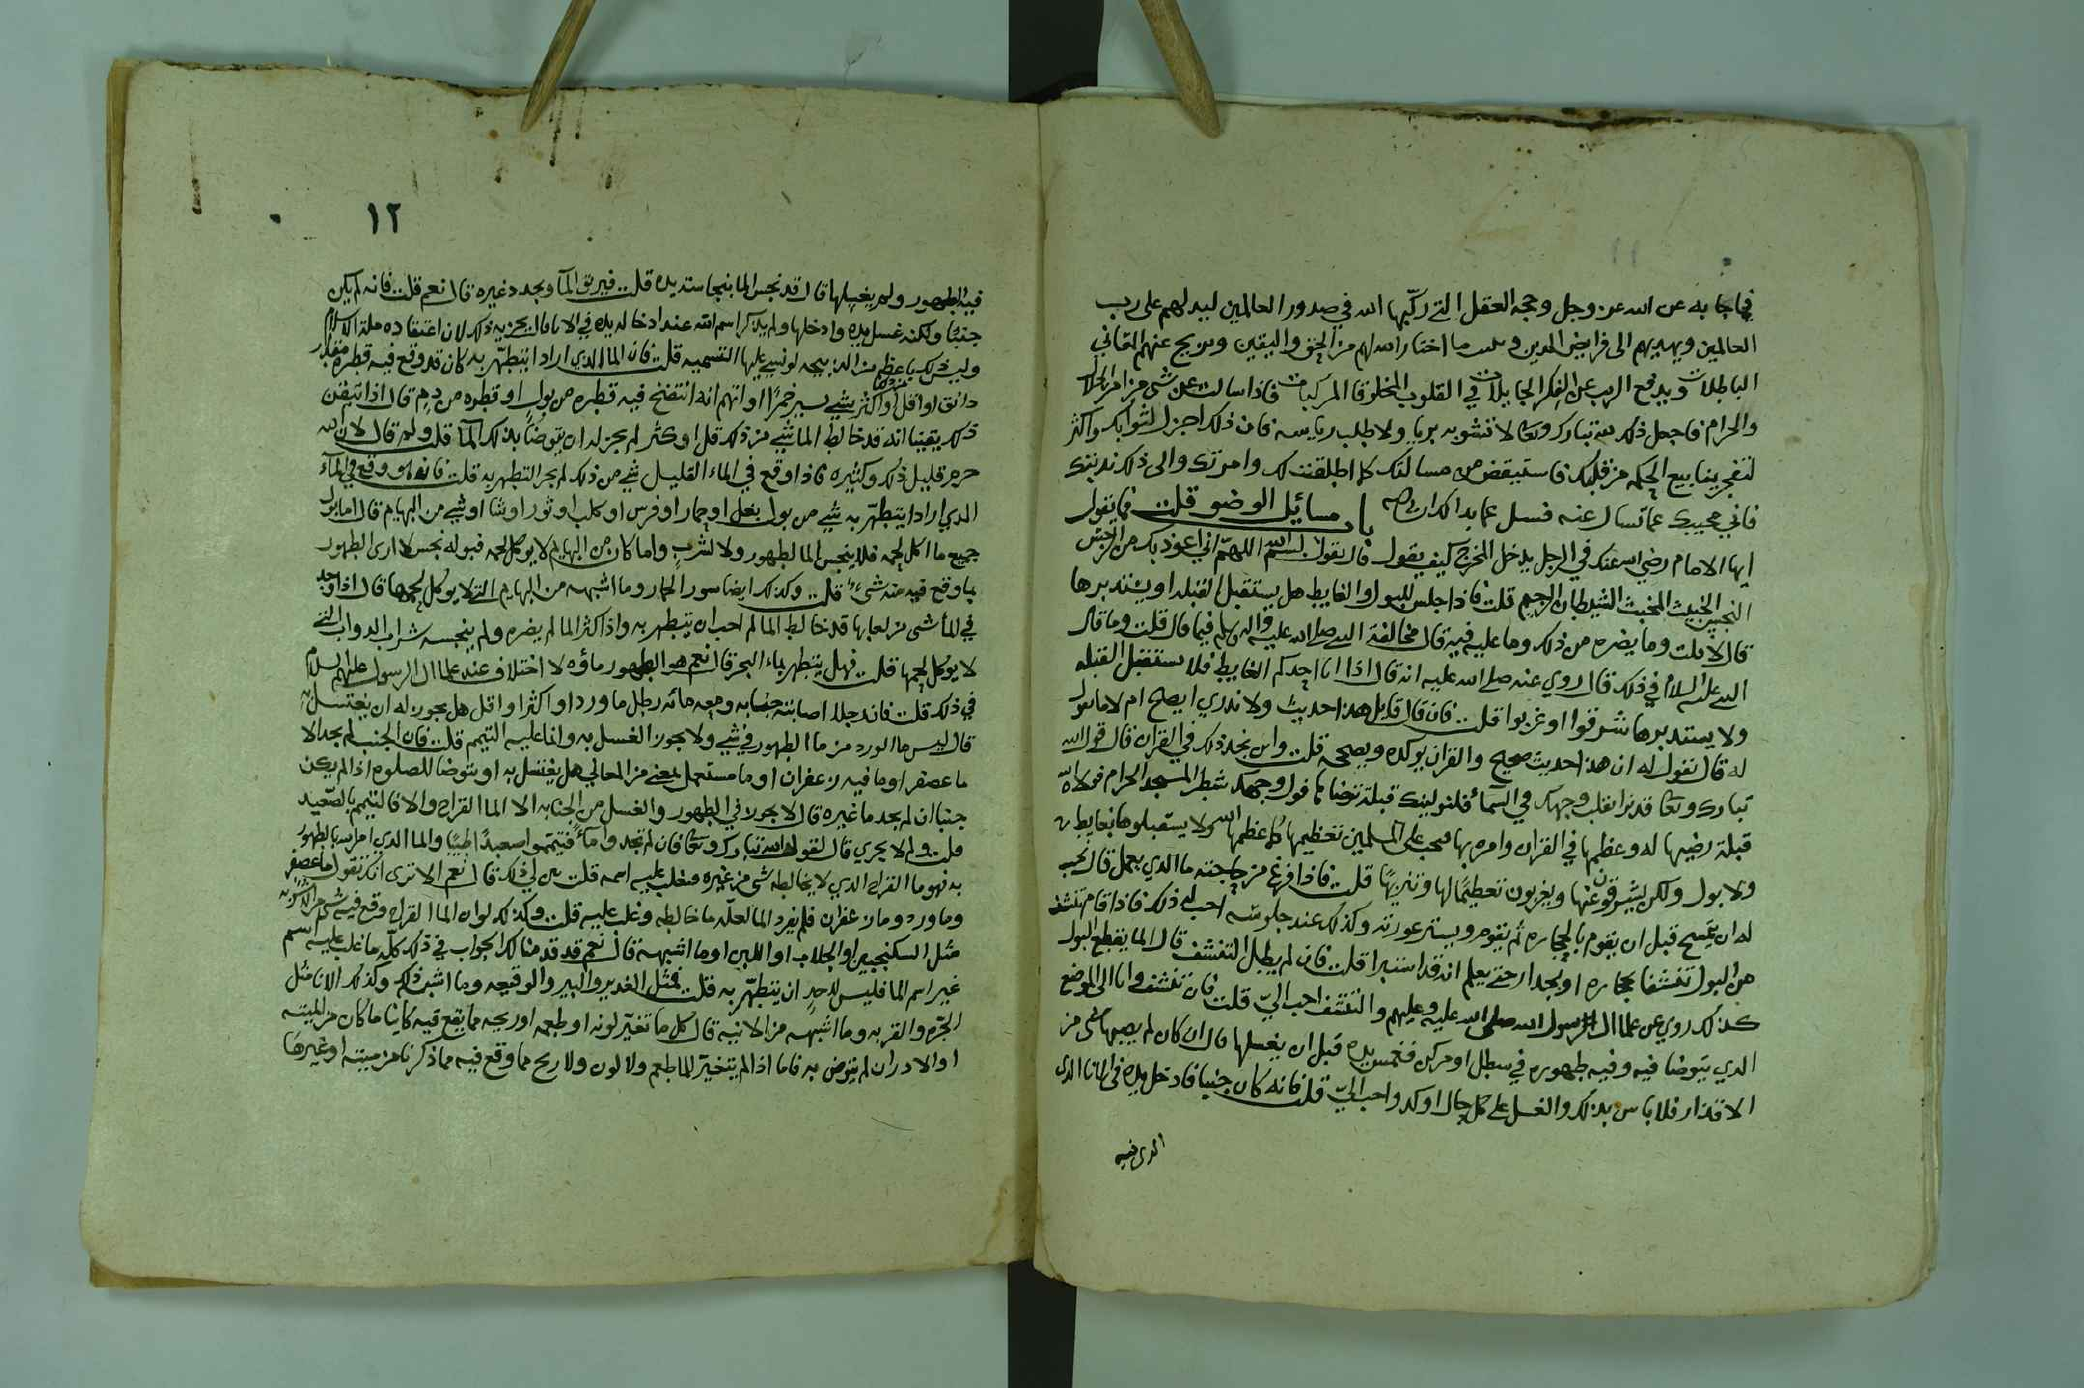 فيما جا به عن الله عز وجل وحجه العقل التي ركّبها الله في صدور العالمين ليدلهم على رب
العالمين ويهديهم الى فرايض الدين وما اختار الله لهم من الحق واليقين ويزيح عنهم التغاني
الباطلات ويدفع الريب عن الفكر الجايلات في القلوب المخلوقات المركبات فاذا سالت عن شي من امر الحلال
والحرام فاجعل ذلك لله تبارك وتعالى لا تشوبه بريا ولا طلب رياسه فان ذلك اجزل لثوابك واكثر
لتفجر ينابيع الحكمه من قلبك فاستيقض من مسالتك كلما اطلقنت لك وامرتك والى ذلك ندبتك
فاني مجيبك عما تسال عنه فسل عما بدا لك ان شا الله باب مسائل الوضو قلت فما تقول
ايها الامام رضي الله عنك في الرجل يدخل المخرج كيف يقول قال يقول بسم الله اللهم اني اعوذ بك من الرجس
النجس الخبيث المخبث الشيطان الرجيم قلت فاذا جلس للبول والغايط هل يستقبل القبله او يستدبرها
قال لا قلت وما يضره من ذلك وما عليه فيه قال مخالفة النبي صلى الله عليه واله وسلم فيما قال قلت وما قال
النبي عليه السلام في ذلك قال روي عنه صلى الله عليه انه قال اذا اتا احدكم الغايط فلا يستقبل القبله
ولا يستدبرها شرقوا او غربوا قلت فان قال قايل هذا حديث ولا ندري ايصح ام لا ما تقول
له قال نقول له ان هذا حديث صحيح والقران يوكده ويصححه قلت واين نجد ذلك في القران قال قول الله
تبارك وتعا قد نرا تقلب وجهك في السماء فلنولينك قبلة ترضاها فول وجهك شطر المسجد الحرام فولاه الله
قبلة رضيها له وعظمها في القران وامره بها فيجب على المسلمين تعظيمها كما عظمها الله ولا يستقبلوها بغايط
ولا بول ولكن يشرقون عنها ويغربون تعظيمًا لها وتنزيهًا قلت فاذا فرغ من حاجته ما الذي يعمل قال يجب
له ان يتمسح قبل ان يقوم بالحجاره ثم يقوم ويستر عورته وكذلك عند جلوسه احب لي ذلك فاذا قام تنشف
من البول تنشفا بحجاره او بجدار حتى يعلم انه قد استبرا قلت فان لم يطل التنشف قال الما يقطع البول
كذلك روي عن علما ال الرسول صلى الله عليه وعليهم والتنشف احب اليّ قلت فان تنشف واتا الى الموضع
الذي يتوضا فيه وفيه طهوره في سطل او مركن فغمس يده قبل ان يغسلها قال ان كان لم يصبها شي من
الاقذار فلا باس بذلك والغسل على كل حال اوكد واحب اليّ قلت فانه كان جنبا فادخل يده في الانا الذي
الذي فيه
١٢
فيه الطهور ولم يغسلها قال قد نجس الما بنجاسة يده قلت فيريق المآ ويجدد غيره قال نعم قلت فانه لم يكن
جنبًا ولكنه غسل يده وادخلها ولم يذكر اسم الله عند ادخاله يده في الانا قال يجزيه ذلك لان اعتقاده ملة الاسلام
وليس ذلك باعظم من الذبيحه لو نسي عليها التسميه قلت فان الما الذي اراد ان يتطهر به كان قد وقع فيه قطره مقدار
دانق او اقل او اكثر بشي يسير خمرًا او اتهم انه انتضخ فيه قطره من بول او قطره من دم قال اذا تيقن
ذلك يقينا انه قد خالط الما شي من ذلك قل او كثر لم يجز له ان يتوضا بذلك المآ قلت ولم قال لان الله
حرم قليل ذلك وكثيره فاذا وقع في الماء القليل شي من ذلك لم يجز التطهر به قلت فانه لو وقع في المآء
الذي اراد ان يتطهّر به شي من بول بغل او حمار او فرس او كلب او ثور او شا او شي من البهايم قال اما بول
جميع ما اكل لحمه فلا ينجس الما لطهور ولا لشرب واما كان من البهايم لا يوكل لحمه فبوله نجس لا ارى الطهور
بما وقع فيه منه شيء قلت وكذلك ايضا سور الحمار وما اشبهه من البهايم التي لا يوكل لحمها قال اذا وجد
في المآ شي من لعابها قد خالط الما لم احب ان يتطهر به واذا كثر الما لم يضره ولم ينجسه شراب الدواب التي
لا يوكل لحمها قلت فهل يتطهر بماء البحر قال نعم هو الطهور ماؤه لا اختلاف عند علما ال الرسول عليهم السلام
في ذلك قلت فان رجلا اصابته جنابه ومعه مائه رطل ما ورد او اكثر او اقل هل يجوز له ان يغتسل به
قال ليس ما الورد من ما الطهور في شي ولا يجوز الغسل به وانما عليه التيمم قلت فان الجنب لم يجد الا
ما عصفر او ما فيه زعفران او ما مستعمل لمعنى من المعاني هل يغتسل به او يتوضا للصلوه اذا لم يكن
جنبا ان لم يجد ما غيره قال لا يجوز في الطهور والغسل من الجنابه الا الما القراح والا فالتيمم بالصّعيد
قلت ولم لا يجزي قال لقول الله تبارك وتعا فان لم تجدوا مآءً فتيمموا صعيدًا طيّبًا والما الذي امر الله بالطهور
به فهو ما القراح الذي لا يخالطه شي من غيره فيغلب عليه اسمه قلت بين لي ذلك قال نعم الا ترى انك تقول ما عصفر
وما ورد وما زعفران فلم يفرد الما لعلّة ما خالطه وغلب عليه قلت وكذلك لو ان الما القراح وقع فيه شي من الاشربه
مثل السكنجبين او الجلاب او اللبن او ما اشبهه قال نعم قد قدمنا لك الجواب في ذلك كلّه ما غلب عليه اسم
غير اسم الما فليس لاحد ان يتطهّر به قلت فمثل الغدير والبير والوقيعه وما اشبه ذلك وكذلك الانا مثل
الجرّه والقربه وما اشبهه من الانيه قال كل ما تغيّر لونه او طعمه او ريحه مما يقع فيه كاينا ما كان من الميته
او الادران لم يتوض به فاما اذا لم يتغيّر للما طعم ولا لون ولا ريح مما وقع فيه مما ذكرنا من ميته او غيرها